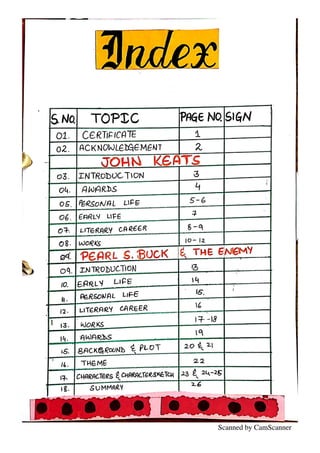 Index
S.NO. TOPIC PAGE NO. SIGN
01. CERTIFICATE 1
02. ACKNOWLEDGEMENT 2
JOHN KEATS
03. INTRODUCTION 3
04. AWARDS 4
05. PERSONAL LIFE 5-6
06. EARLY LIFE 7
07. LITERARY CAREER 8-9
08. WORKS 10-12
09. PEARL S. BUCK & THE ENEMY
09. INTRODUCTION 13
10. EARLY LIFE 14
11. PERSONAL LIFE 15.
12. LITERARY CAREER 16
13. WORKS 17-18
14. AWARDS 19
15. BACKGROUND & PLOT 20 & 21
16. THEME 22
17. CHARACTERS & CHARACTERSKETCH 23 & 24-25
18. SUMMARY 26
Scanned by CamScanner